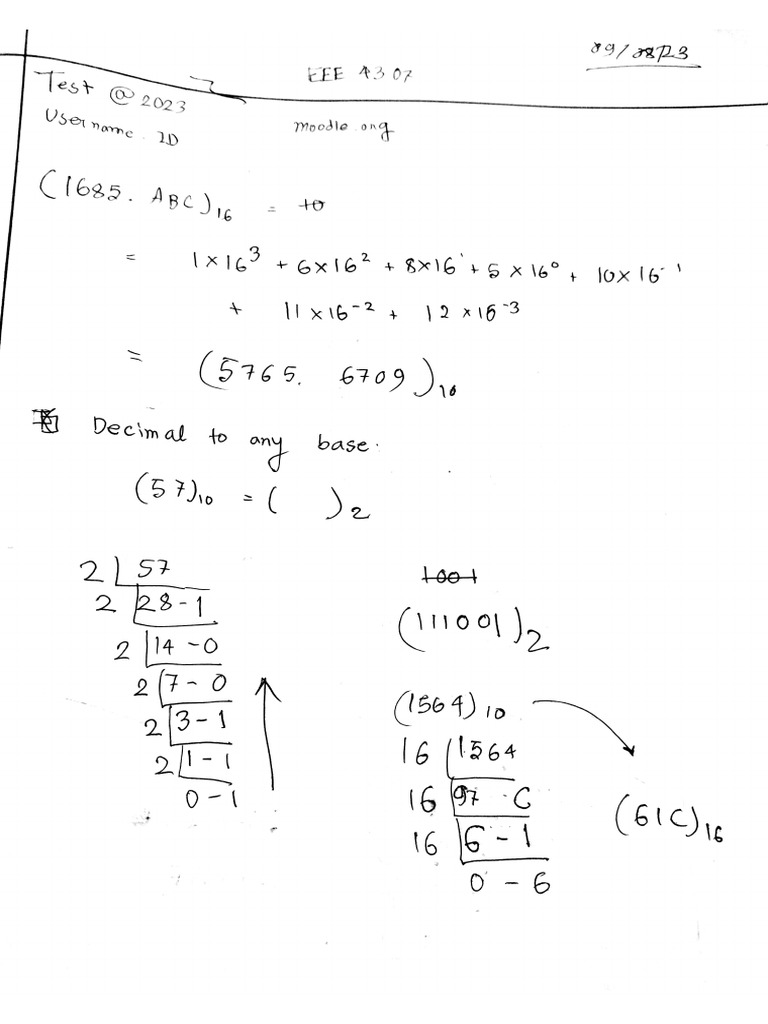 EEE 4307
Test @ 2023
Username. ID
moodle.org
(1685. ABC)₁₆ = to
= 1×16³ + 6×16² + 8×16¹ + 5×16⁰ + 10×16⁻¹
+ 11×16⁻² + 12×16⁻³
= (5765. 6709)₁₀
Decimal to any base.
(57)₁₀ = ( )₂
2 57
2 28-1
2 14-0
2 7-0
2 3-1
2 1-1
0-1
1001
(111001)₂
(1564)₁₀
16 1564
16 97 C
16 6-1
0-6
(61C)₁₆